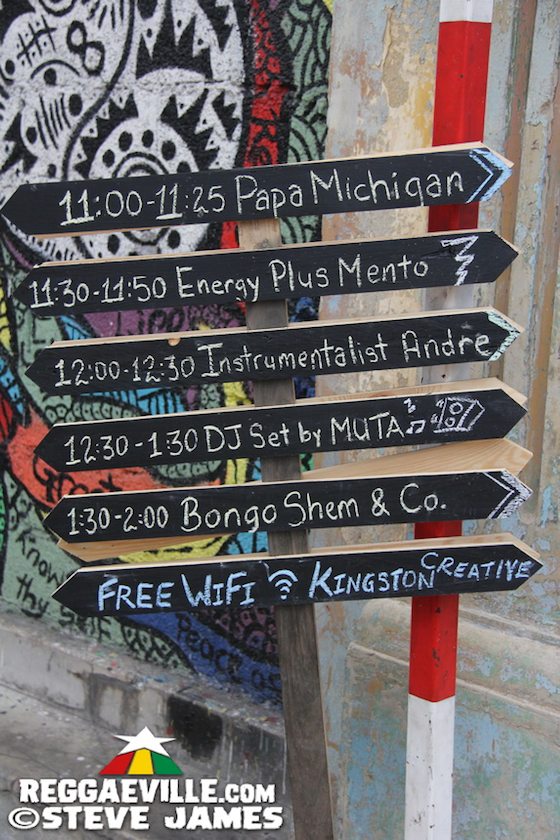 11:00-11:25 Papa Michigan
11:30-11:50 Energy Plus Mento
12:00-12:30 Instrumentalist Andre
12:30-1:30 DJ Set by MUTA
1:30-2:00 Bongo Shem & Co.
FREE WIFI KINGSTON CREATIVE
Know
thy Self
Peace
REGGAEVILLE.com
©STEVE JAMES